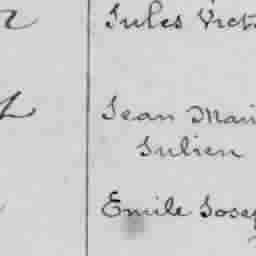 Jules Vict
Jean Mari
Julien
Emile Josep